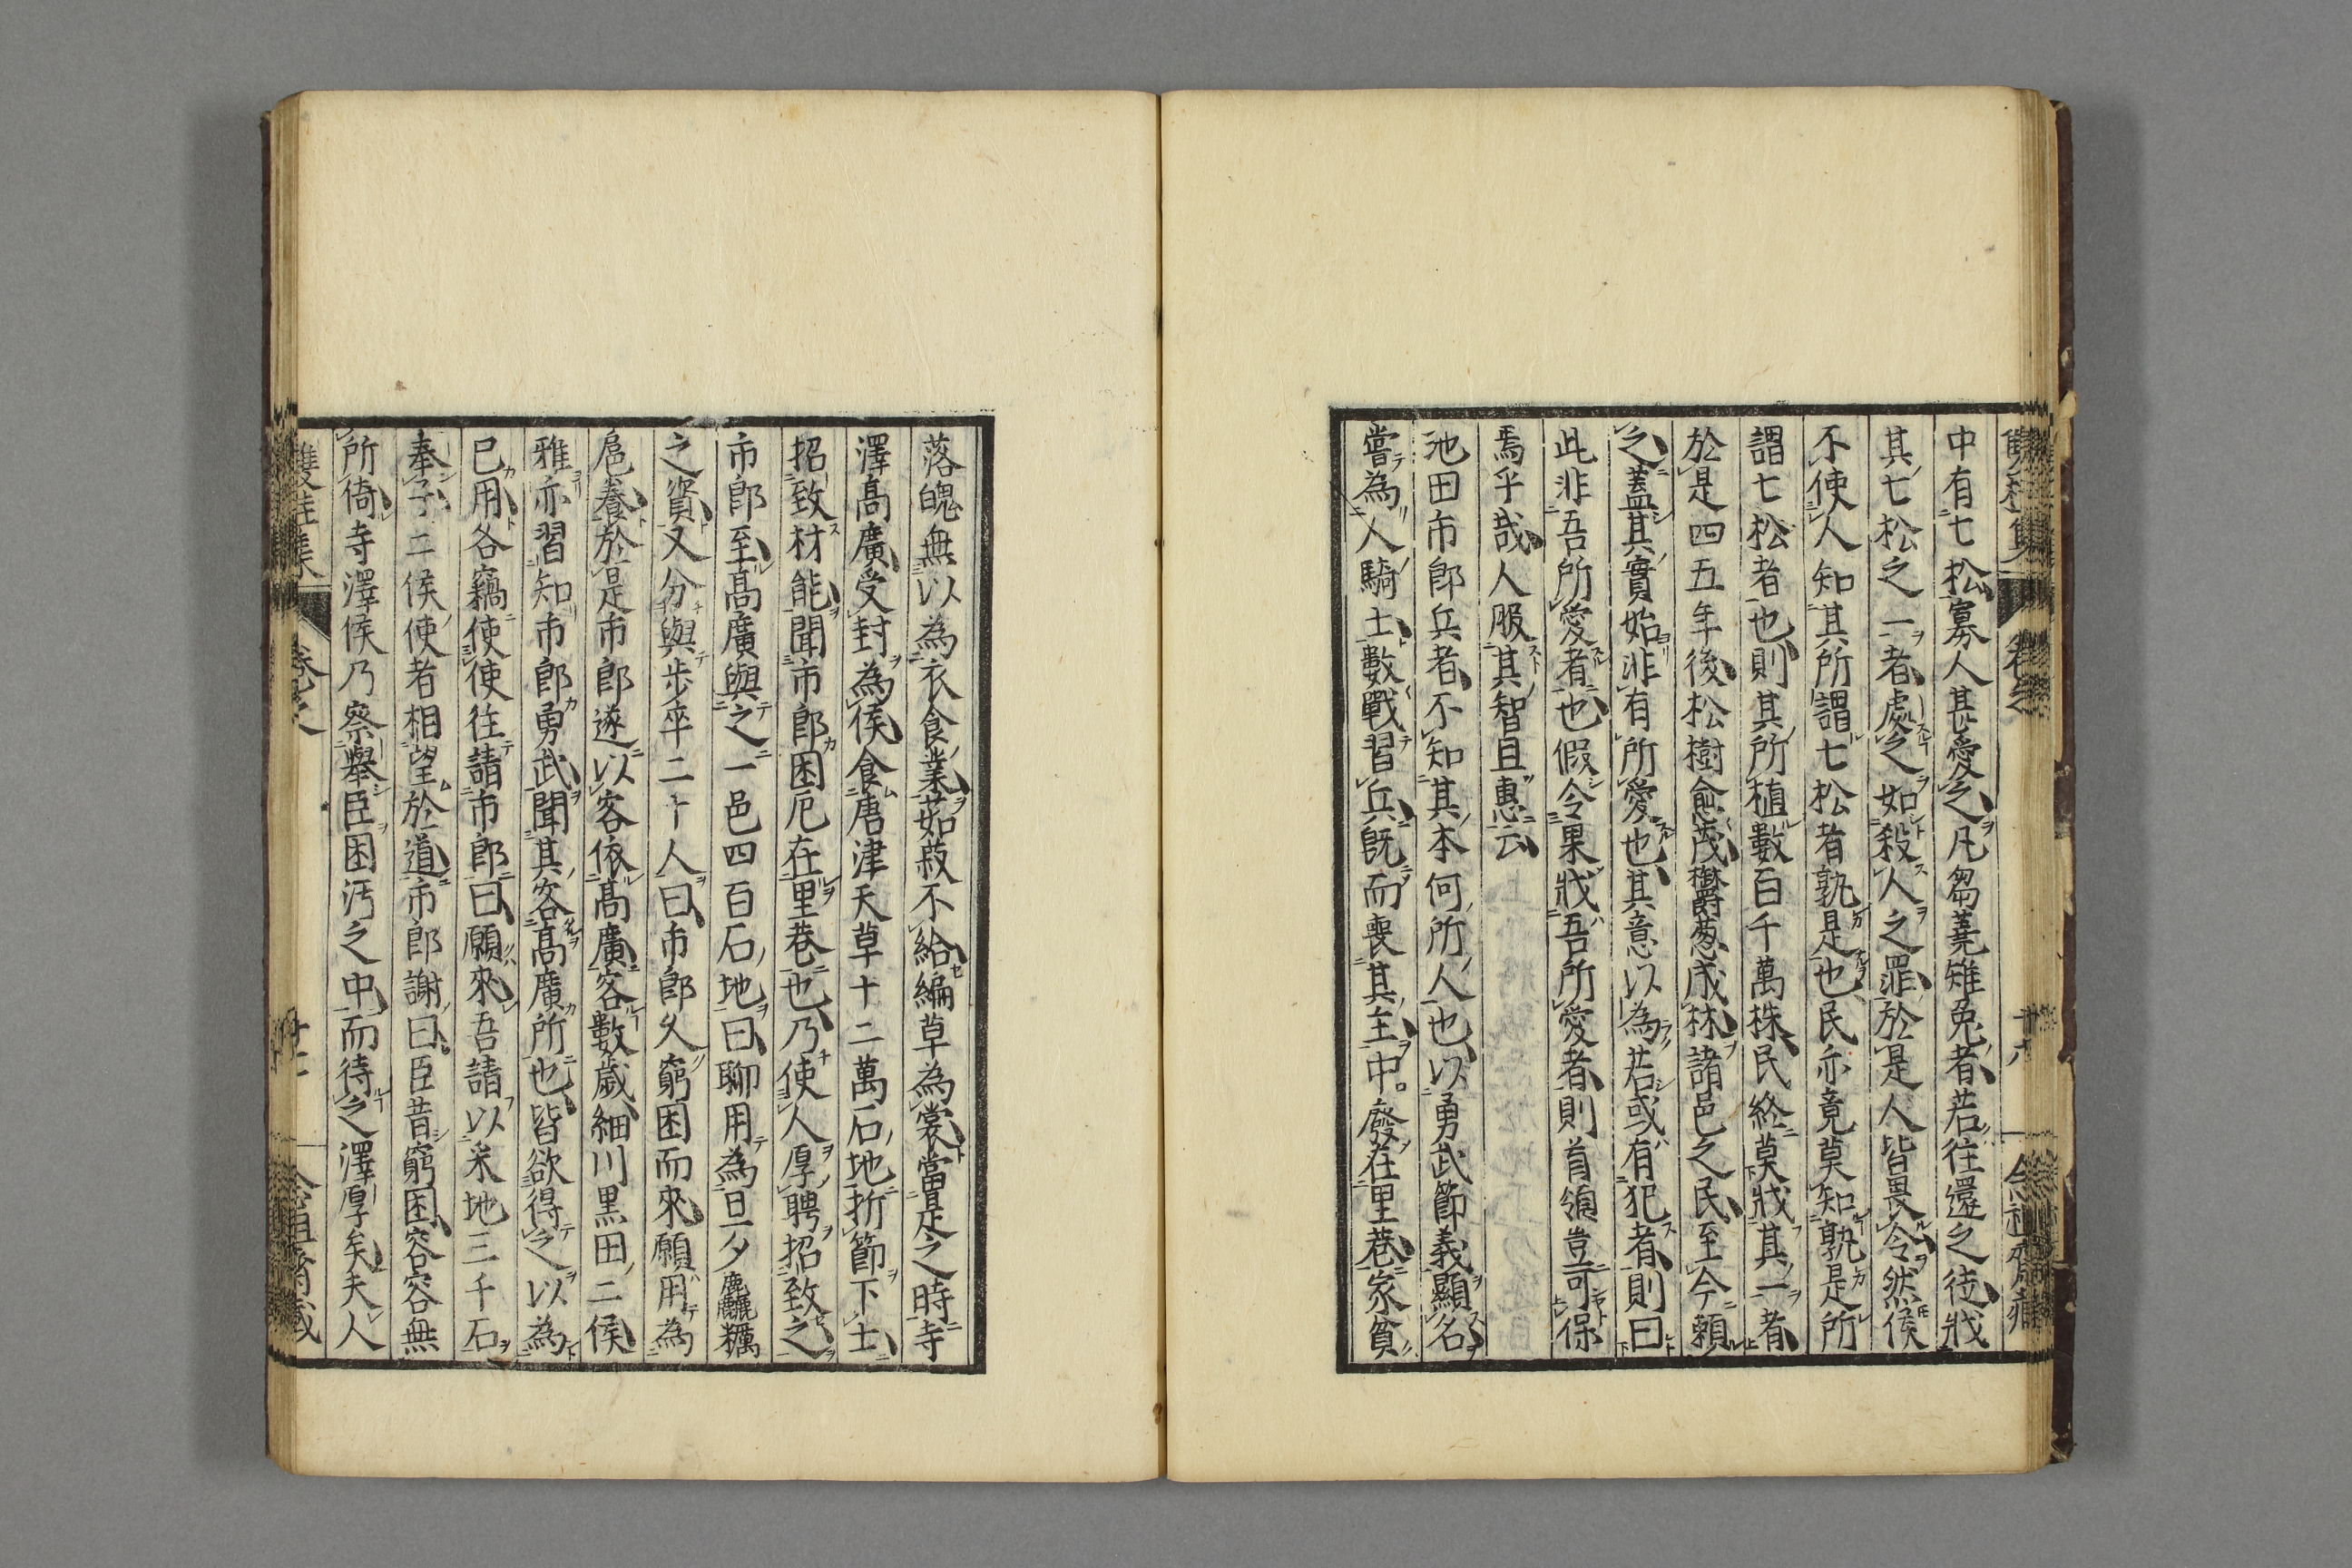 中有七松寡人甚愛之凡芻蕘雉兔者若往還之徒戕
其七松之一者處之如殺人之罪於是人皆畏令然侯
不使人知其所謂七松者孰是也民亦竟莫知孰是所
謂七松者也則其所植數百千萬株民終莫戕其一者
於是四五年後松樹愈茂欝葱成林諸邑之民至今賴
之蓋其實始非有所愛也其意以為若或有犯者則曰
此非吾所愛者也假令果戕吾所愛者則首領豈可保
焉乎哉人服其智且惠云
池田市郎兵者不知其本何所人也以勇武節義顯名
嘗為人騎士數戰習兵既而喪其主中廢在里巷家貧
落魄無以為衣食業茹菽不給編草為裳當是之時寺
澤高廣受封為侯食唐津天草十二萬石地折節下士
招致材能聞市郎困厄在里巷也乃使人厚聘招致之
市郎至高廣與之一邑四百石地曰聊用為旦夕麁糲
之資又分與步卒二十人曰市郎久窮困而來願用為
扈養於是市郎遂以客依高廣客數歲細川黑田二侯
雅亦習知市郎勇武聞其客高廣所也皆欲得之以為
已用各竊使使往請市郎曰願來吾請以釆地三千石
奉子二侯使者相望於道市郎謝曰臣昔窮困容容無
所倚寺澤侯乃察舉臣困汚之中而待之澤厚矣夫人
雙桂集